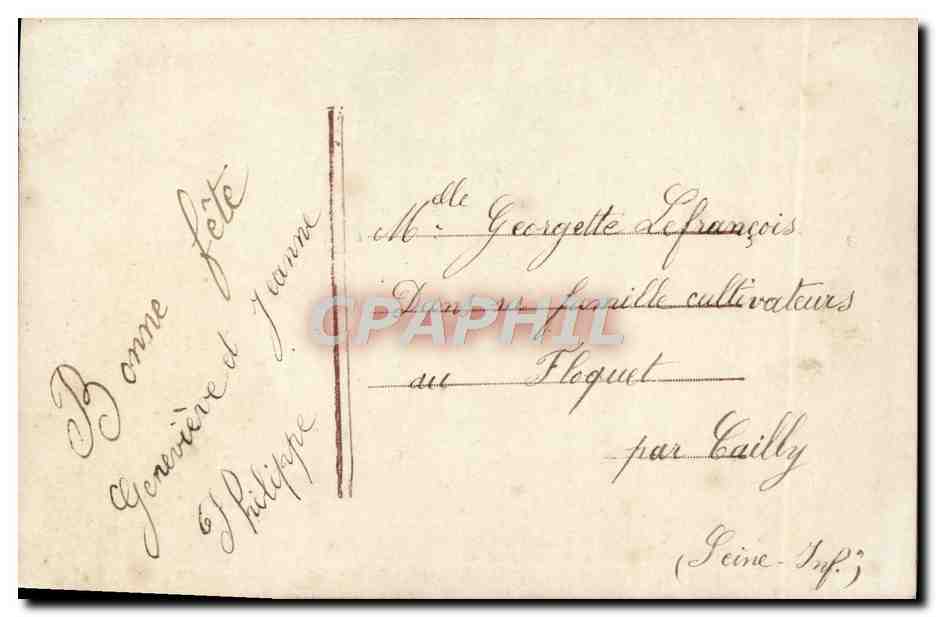 Bonne fête
Geneviève et Jeanne
Philippe
Mdlle Georgette Lefrançois
Dans sa famille cultivateurs
au Floquet
par Cailly
(Seine-Infre)
CPAPHIL